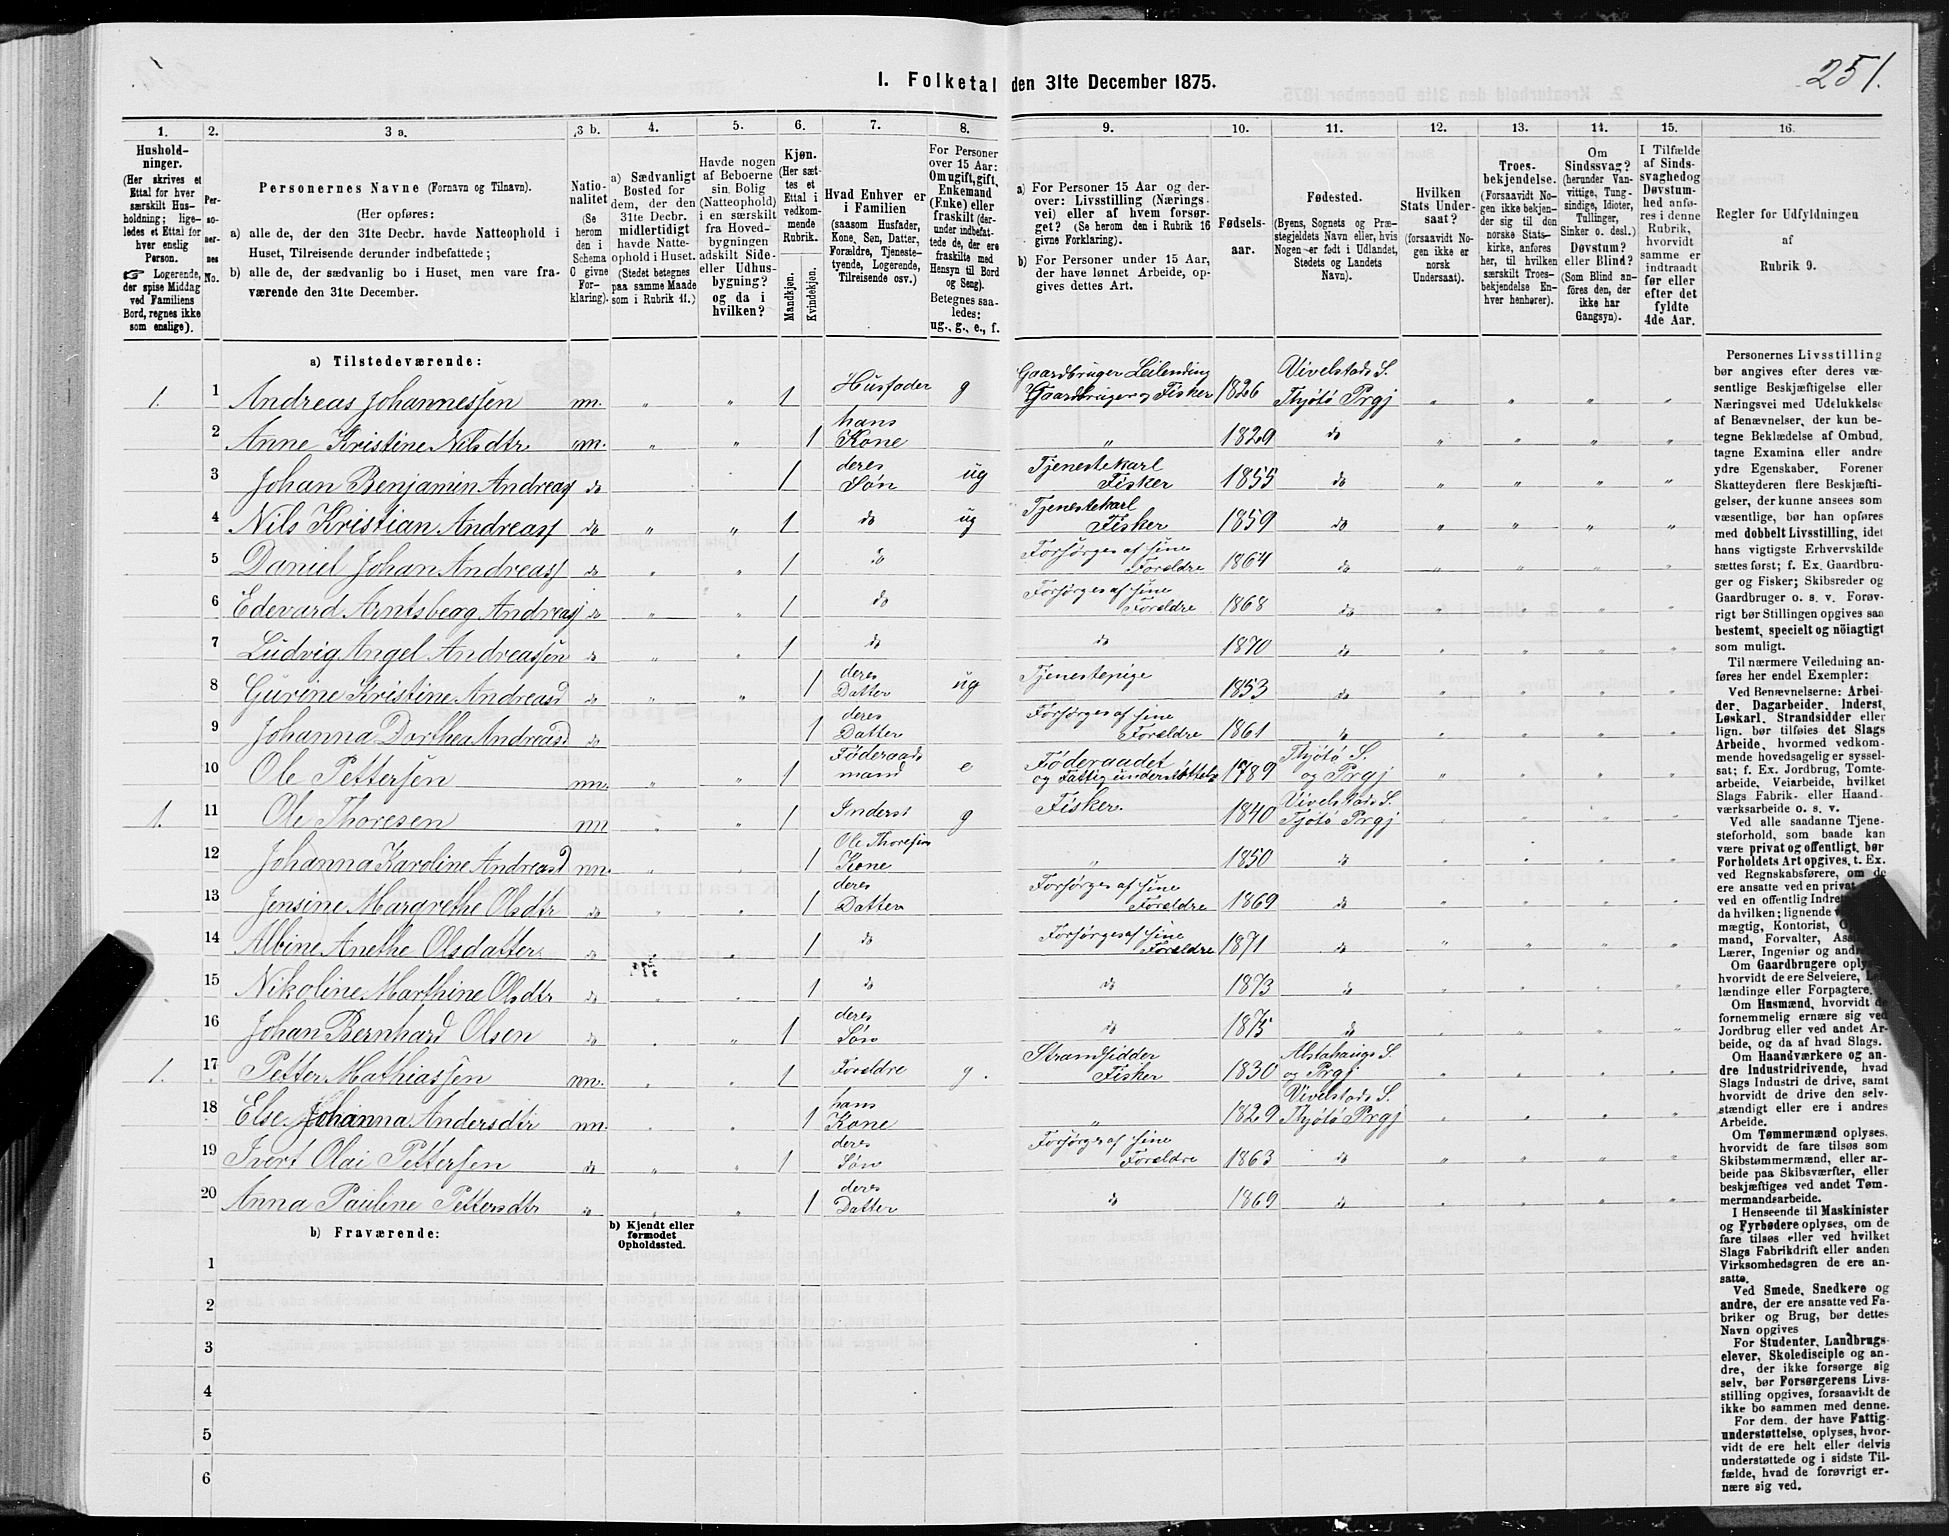 251.
1. Folketal den 31te December 1875.
1.
2.
3 a.
3 b.
4.
5.
6.
7.
8.
9.
10.
11.
12.
13.
14.
15.
16.
Hushold-
ninger.
(Her skrives et
Ettal for hver
særskilt Hus-
holdning; lige-
ledes et Ettal for
hver enslig
Person.
☞ Logerende,
der spise Middag
ved Familiens
Bord, regnes ikke
som enslige).
Per-
so-
ner-
nes
No.
Personernes Navne (Fornavn og Tilnavn).
(Her opføres:
a) alle de, der den 31te Decbr. havde Natteophold i
Huset, Tilreisende derunder indbefattede;
b) alle de, der sædvanlig bo i Huset, men vare fra-
værende den 31te December.
Natio-
nalitet
(Se
herom
den i
Schema
C givne
For-
klaring).
a) Sædvanligt
Bosted for
dem, der den
31te Decbr.
midlertidigt
havde Natte-
ophold i Huset.
(Stedet betegnes
paa samme Maade
som i Rubrik 11.)
Havde nogen
af Beboerne
sin Bolig
(Natteophold)
i en særskilt
fra Hoved-
bygningen
adskilt Side-
eller Udhus-
bygning?
og da i
hvilken?
Kjøn.
(Her sæt-
tes et
Ettal i
vedkom-
mende
Rubrik.
Mandkjøn.
Kvindekjøn.
Hvad Enhver er
i Familien
(saasom Husfader,
Kone, Søn, Datter,
Forældre, Tjeneste-
tyende, Logerende,
Tilreisende osv.)
For Personer
over 15 Aar:
Om ugift, gift,
Enkemand
(Enke) eller
fraskilt (der-
under indbefat-
tede de, der ere
fraskilte med
Hensyn til Bord
og Seng).
Betegnes saa-
ledes:
ug., g., e., f.
a) For Personer 15 Aar og der-
over: Livsstilling (Nærings-
vei) eller af hvem forsør-
get? (Se herom den i Rubrik 16
givne Forklaring).
b) For Personer under 15 Aar,
der have lønnet Arbeide, op-
gives dettes Art.
Fødsels-
aar.
Fødested.
(Byens, Sognets og Præ-
stegjeldets Navn eller, hvis
Nogen er født i Udlandet,
Stedets og Landets
Navn).
Hvilken
Stats Under-
saat?
(forsaavidt No-
gen ikke er
norsk
Undersaat).
Troes-
bekjendelse.
(Forsaavidt No-
gen ikke bekjen-
der sig til den
norske Stats-
kirke, anføres
her, til hvilken
særskilt Troes-
bekjendelse En-
hver henhører).
Om
Sindssvag?
(herunder Van-
vittige, Tung-
sindige, Idioter,
Tullinger,
Sinker o. desl.)
Døvstum?
eller Blind?
(Som Blind an-
føres den, der
ikke har
Gangsyn).
I Tilfælde
af Sinds-
svaghed og
Døvstum-
hed anfø-
res i denne
Rubrik,
hvorvidt
samme er
indtraadt
før eller
efter det
fyldte
4de Aar.
Regler for Udfyldningen
af
Rubrik 9.
a) Tilstedeværende:
1. 1 Andreas Johannessen nn. " " 1 Husfader g Gaardbruger Leilending Gaardbruger og Fisker 1826 Vivelstads S. Thjøtø Prgj " " " "
2 Anne Kristine Nilsdtr nn. " " 1 hans Kone " 1829 do " " " "
3 Johan Benjamin Andreass do 1 deres Søn ug Tjenestekarl Fisker 1855 do " " " "
4 Nils Kristian Andreass do " " 1 do ug Tjenestekarl Fisker 1859 do " " " "
5 Daniel Johan Andreass do " " 1 do Forsørges af sine Forældre 1864 do " " " "
6 Edevard Arntsberg Andreass do " " 1 do Forsørges af sine Forældre 1868 do " " " "
7 Ludvig Angel Andreassen do " " 1 do do 1870 do " " " "
8 Gurine Kristine Andreasd do " " 1 deres Datter ug Tjenestepige 1853 do " " " "
9 Johanna Dorthea Andreasd do 1 deres Datter Forsørges af sine Forældre 1861 do " " " "
10 Ole Pettersen nn. " " 1 Føderaads mand e Føderaadet og Fattigunderstøttelse 1789 Thjøtø S. og Prgj " " " "
1. 11 Ole Thoresen nn " " 1 Inderst g Fisker. 1840 Vivelstads S. Tjøtø Prgj " " " "
12 Johanna Karoline Andreasd nn. 1 Ole Thoresens Kone " 1850 do " " " "
13 Jensine Margrethe Olsdtr do " " 1 deres Datter Forsørges af sine Forældre 1869 do " " " "
14 Albine Anethe Olsdatter. do " " 1 do Forsørges af sine Forældre 1871 do " " " "
15 Nikoline Marthine Olsdtr do " " 1 do do 1873 do " " " "
16 Johan Bernhard Olsen do " " 1 deres Søn do 1875 do " " " "
1. 17 Petter Mathiassen nn. " " 1 Forældre g. Strandsidder Fisker 1830 Alstahaugs S. og Prgj " " " "
18 Else Johanna Andersdtr nn. 1 hans Kone " 1829 Vivelstads S. Thjøtø Prgj " " " "
19 Ivert Olai Pettersen do " " 1 deres Søn Forsørges af sine Forældre 1863 do " " " "
20 Anna Pauline Pettersdtr do " " 1 deres Datter do 1869 do " " " "
b) Fraværende:
b) Kjendt eller
formodet
Opholdssted.
1
2
3
4
5
6
Personernes Livsstilling
bør angives efter deres væ-
sentlige Beskjæftigelse eller
Næringsvei med Udelukkelse
af Benævnelser, der kun be-
tegne Beklædelse af Ombud,
tagne Examina eller andre
ydre Egenskaber. Forener
Skatteyderen flere Beskjæfti-
gelser, der kunne ansees som
væsentlige, bør han opføres
med dobbelt Livsstilling, idet
hans vigtigste Erhvervskilde
sættes først; f. Ex. Gaardbru-
ger og Fisker; Skibsreder og
Gaardbruger o. s. v. Forøv-
rigt bør Stillingen opgives saa
bestemt, specielt og nöiagtigt
som muligt.
Til nærmere Veiledning an-
føres her endel Exempler:
Ved Benævnelserne: Arbei-
der, Dagarbeider, Inderst,
Løskarl, Strandsidder eller
lign. bør tilføies det Slags
Arbeide, hvormed vedkom-
mende hovedsagelig er syssel-
sat; f. Ex. Jordbrug, Tomte-
arbeide, Veiarbeide, hvilket
Slags Fabrik- eller Haand-
værksarbeide o. s. v.
Ved alle saadanne Tjene-
steforhold, som baade kan
være privat og offentligt, bør
Forholdets Art opgives, t. Ex.
ved Regnskabsførere, om de
ere ansatte ved en privat
ved en offentlig Indret
da hvilken; lignende
mægtig, Kontorist,
mand, Forvalter,
Lærer, Ingeniør og
Om Gaardbrugere
hvorvidt de ere Selveiere,
lændinge eller Forpagtere.
Om Husmænd, hvorvidt de
fornemmelig ernære sig ved
Jordbrug eller ved andet Ar-
beide, og da af hvad Slags.
Om Haandværkere og an-
dre Industridrivende, hvad
Slags Industri de drive, samt
hvorvidt de drive den selv-
stændigt eller ere i andres
Arbeide.
Om Tømmermænd oplyses,
hvorvidt de fare tilsøs som
Skibstømmermænd, eller ar-
beide paa Skibsværfter, eller
beskjæftiges ved andet Tøm-
mermandsarbeide.
I Henseende til Maskinister
og Fyrbødere oplyses, om de
fare tilsøs eller ved hvilket
Slags Fabrikdrift eller anden
Virksomhedsgren de ere an-
satte.
Ved Smede, Snedkere og
andre, der ere ansatte ved Fa-
briker og Brug, bør dettes
Navn opgives
For Studenter, Landbrugs-
elever, Skoledisciple og an-
dre, der ikke forsørge sig
selv, bør Forsørgerens Livs-
stilling opgives, forsaavidt de
ikke bo sammen med denne.
For dem, der have Fattig-
understøttelse, oplyses, hvor-
vidt de ere helt eller delvis
understøttede og i sidste Til-
fælde, hvad de forøvrigt er-
nære sig ved.